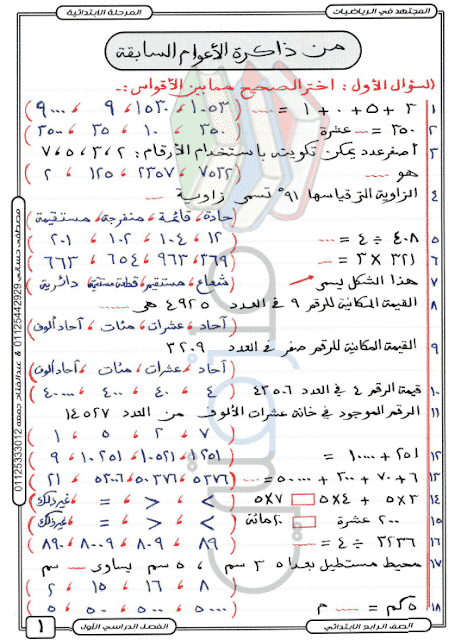 المجتهد في الرياضيات
المرحلة الابتدائية
من ذاكرة الأعوام السابقة
السؤال الأول : اختر الصحيح مما بين الأقواس :-
١ ٣ + ٥ + ٠ + ١ = ---- ( ١٠٥٣ ، ١٥٣٠ ، ٩ ، ٩٠٠٠ )
٢ ٣٥٠ = --- عشرة ( ٣٥٠ ، ١٠ ، ٣٥ ، ٣٥٠٠ )
٣ أصغر عدد يمكن تكوينه باستخدام الأرقام : ٢ ، ٣ ، ٥ ، ٧
هو ---- ( ٧٥٣٢ ، ٢٣٥٧ ، ١٢٥ ، ٢ )
٤ الزاوية التى قياسها ٩١° تسمى زاوية ---
( حادة ، قائمة ، منفرجة ، مستقيمة )
٥ ٤٠٨ ÷ ٤ = ---- ( ١٢ ، ١٠٤ ، ١٠٢ ، ٢٠١ )
٦ ٣٢١ × ٣ = ---- ( ٣٦٩ ، ٩٦٣ ، ٦٥٤ ، ٦٦٣ )
٧ هذا الشكل يسمى ( شعاع ، مستقيم ، قطعة مستقيمة ، دائرية )
٨ القيمة المكانية للرقم ٩ فى العدد ٤٩٢٥ هى ----
( آحاد ، عشرات ، مئات ، آحاد ألوف )
٩ القيمة المكانية للرقم صفر فى العدد ٣٢٠٩
( آحاد ، عشرات ، مئات ، آحاد ألوف )
١٠ قيمة الرقم ٤ فى العدد ٤٣٥٠٦ ( ٤ ، ٤٠ ، ٤٠٠ ، ٤٠٠٠٠ )
١١ الرقم الموجود فى خانة عشرات الألوف من العدد ١٤٥٢٧
( ٧ ، ٢ ، ٥ ، ١ )
١٢ ٢٥١ + ١٠٠٠٠ = ( ١٢٥١ ، ١٠٥٢١ ، ١٠٢٥١ ، ٩ )
١٣ ٦ + ٧٠ + ٣٠٠ + ٥٠٠٠٠ = ---
١٤ ٥ × ٣ + ٥ × ٤ □ ٥ × ٧ ( > ، < ، = ، غير ذلك )
١٥ ٢٠٠ عشرة □ ٢٠ مائة ( > ، < ، = ، غير ذلك )
١٦ ٣٢٣٦ ÷ ٤ = ---- ( ٨٩ ، ٨٠٩ ، ٨٠٠٩ ، ٨٩٠ )
١٧ محيط مستطيل بعداه ٣ سم ، ٥ سم يساوى --- سم
( ٨ ، ١٦ ، ١٥ ، ٢ )
١٨ ٥ كم = ---- م ( ٥٠٠٠ ، ٥٠٠ ، ٥٠ ، ٥ )
01125442929
01125333012
الصف الرابع الابتدائي
الفصل الدراسي الأول
١